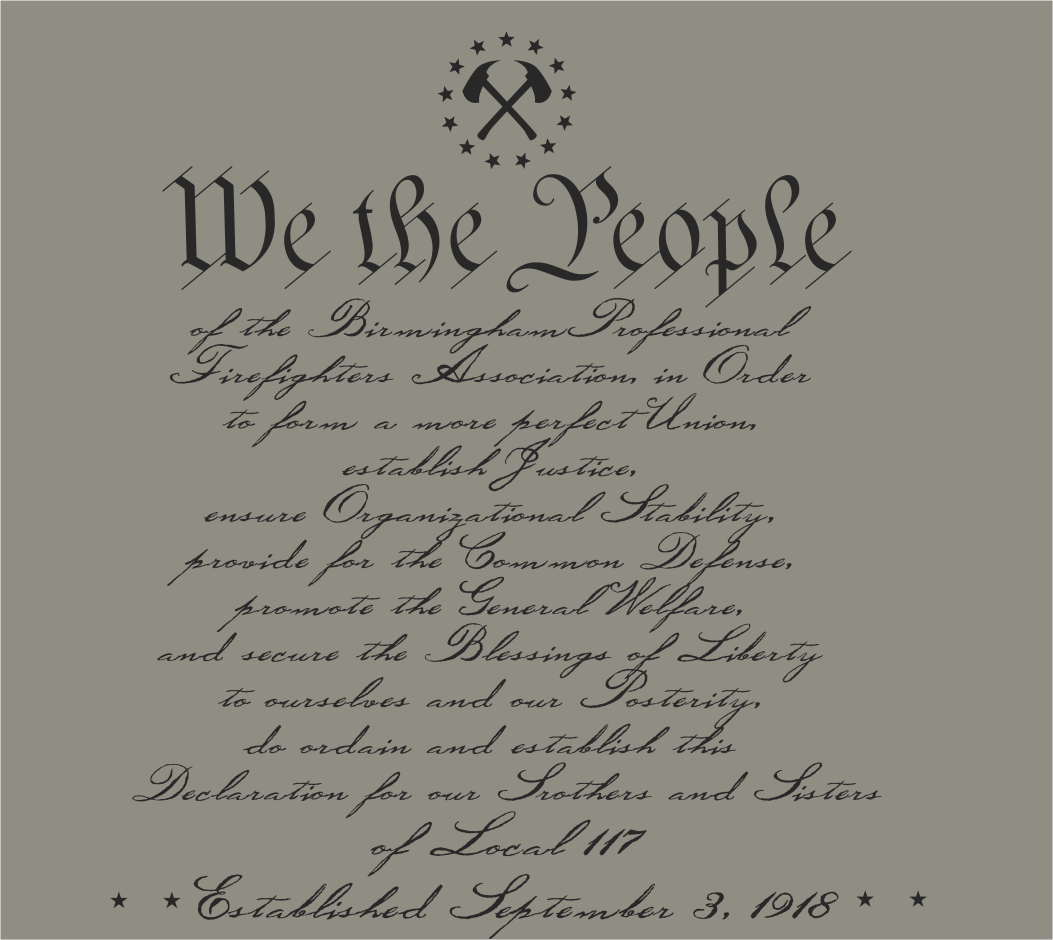 We the People
of the Birmingham Professional
Firefighters Association, in Order
to form a more perfect Union,
establish Justice,
ensure Organizational Stability,
provide for the Common Defense,
promote the General Welfare,
and secure the Blessings of Liberty
to ourselves and our Posterity,
do ordain and establish this
Declaration for our Srothers and Sisters
of Local 117
Established September 3, 1918